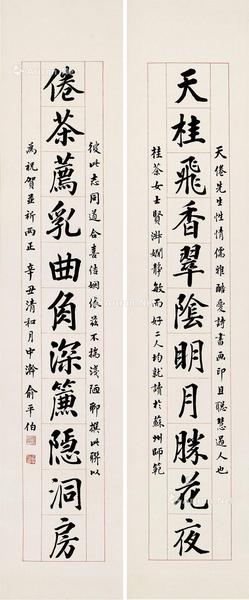 天倦先生性情儒雅酷愛詩書画印且聪慧過人也
天桂飛香翠陰明月勝花夜
桂茶女士賢淑嫻静敏而好二人均就讀於蘇州師範
彼此志同道合喜结姻缘茲不揣淺陋聊撰此聯以
倦茶薦乳曲角深簾隐洞房
為祝賀並祈两正 辛丑清和月中瀚 俞平伯